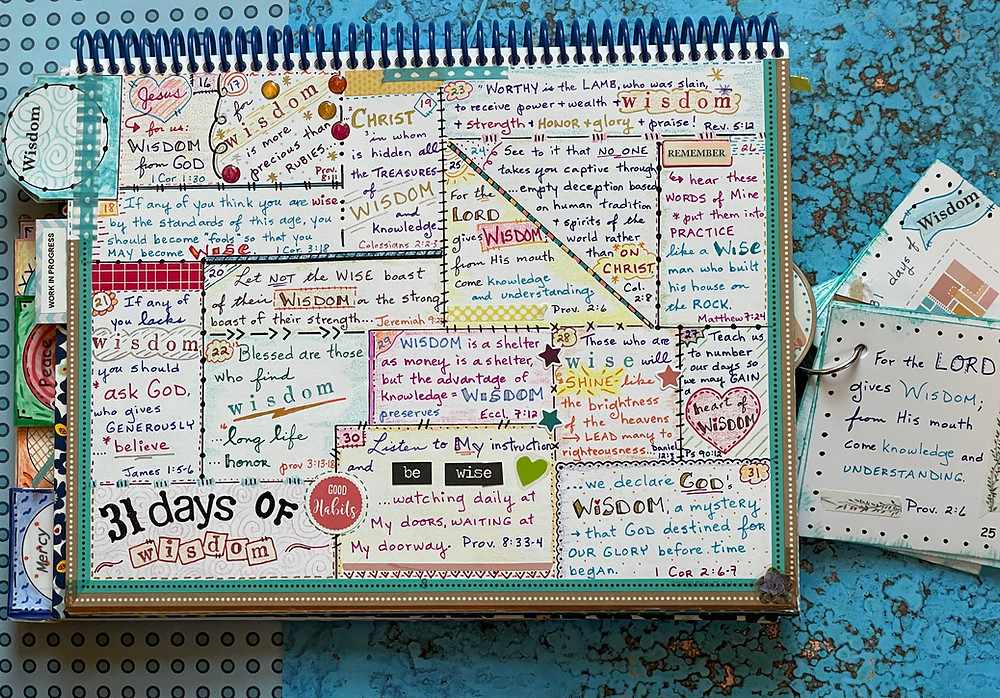 Wisdom
WORK IN PROGRESS
Peace
Mercy
16
Jesus
for us:
WISDOM
from GOD
1 Cor 1:30
17
for
wisdom
is more
precious than
RUBIES...
Prov. 8:11
18
If any of you think you are wise
by the standards of this age, you
should become fools so that you
MAY become wise.
1 Cor. 3:18
19
CHRIST
in whom
is hidden all
the TREASURES
of
WISDOM
and
knowledge
Colossians 2:2-3
20
Let NOT the WISE boast
of their WISDOM or the strong
boast of their strength...
Jeremiah 9:23
21
If any of
you lacks
wisdom
you should
ask GOD,
who gives
GENEROUSLY
believe
James 1:5-6
22
Blessed are those
who find
wisdom
...long life
...honor
prov 3:13-18
23
"WORTHY is the LAMB, who was slain,
to receive power + wealth + wisdom
+ strength + HONOR + glory + praise!
Rev. 5:12
24
See to it that NO ONE
takes you captive through
...empty deception based
on human tradition
+ spirits of the
world rather
than ON
CHRIST
Col.
2:8
25
For the
LORD
gives WISDOM
from His mouth
come knowledge
and understanding.
Prov. 2:6
REMEMBER
26
hear these
WORDS of Mine
+ put them into
PRACTICE
like a WISE
man who built
his house on
the ROCK.
Matthew 7:24
27
Teach us
to number
our days so
we may GAIN
heart of
WISDOM
Ps 90:12
28
Those who are
wise will
SHINE like
the brightness
of the heavens
→ LEAD many to
righteousness...
Daniel
12:3
29
WISDOM is a shelter
as money is a shelter,
but the advantage of
Knowledge = WISDOM
preserves
Eccl. 7:12
30
Listen to My instruction
and
be wise
...watching daily at
My doors, WAITING at
My doorway.
Prov. 8:33-4
31
...we declare GOD's
WISDOM, a mystery
→ that GOD destined for
OUR GLORY before time
began.
1 Cor 2:6-7
31 days OF
wisdom
GOOD
Habits
Wisdom
days of
For the LORD
gives WISDOM;
from His mouth
come knowledge and
UNDERSTANDING.
Prov. 2:6
25